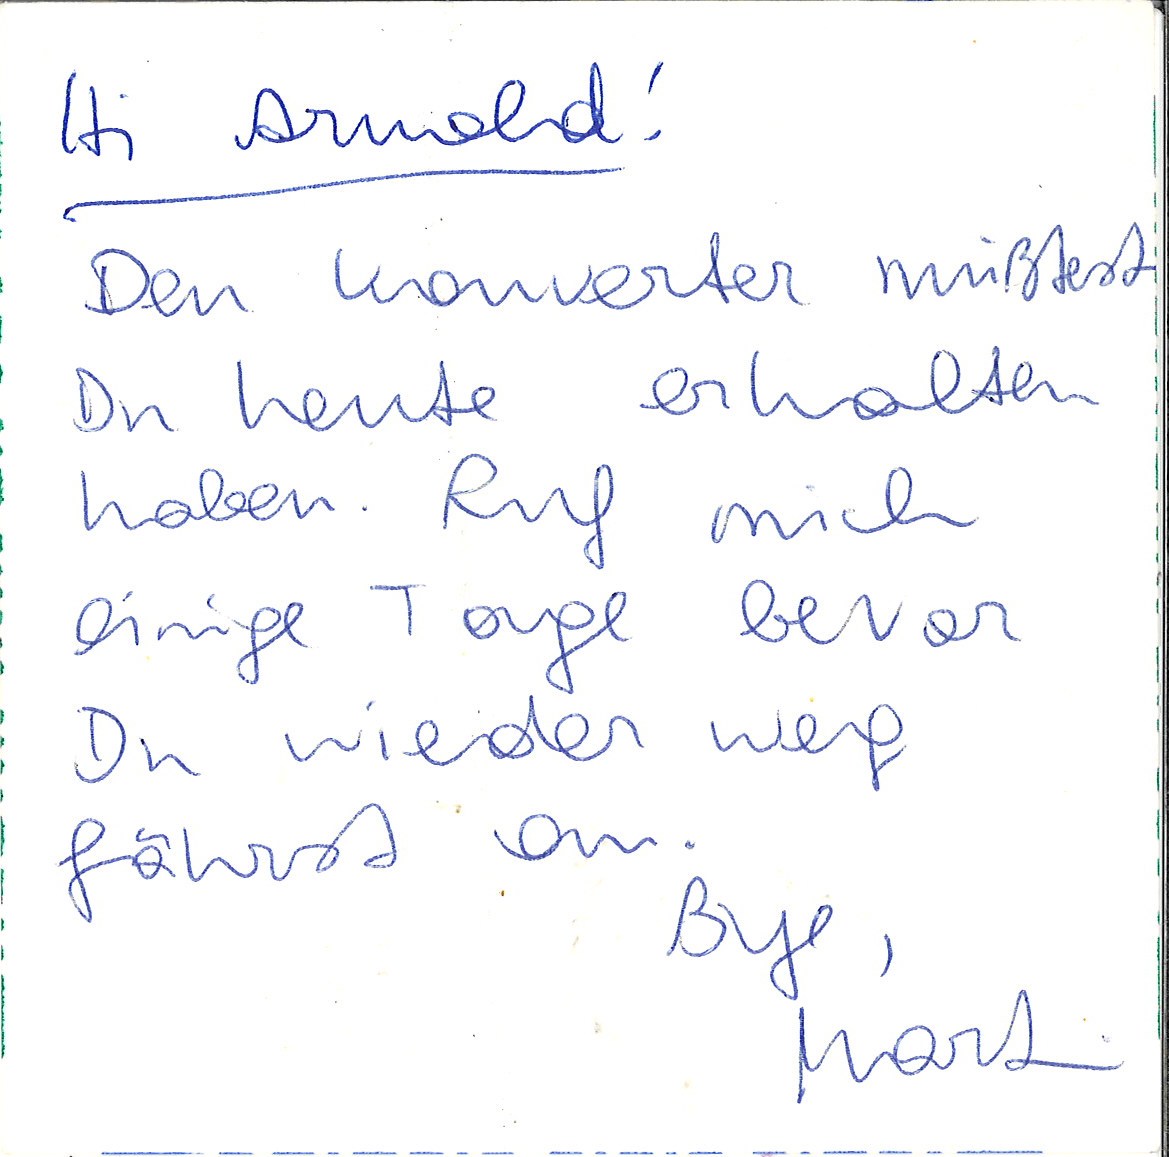 Hi Arnold!
Den Konverter müßtest
Du heute erhalten
haben. Ruf mich
einige Tage bevor
Du wieder weg
fährst an.
Bye,